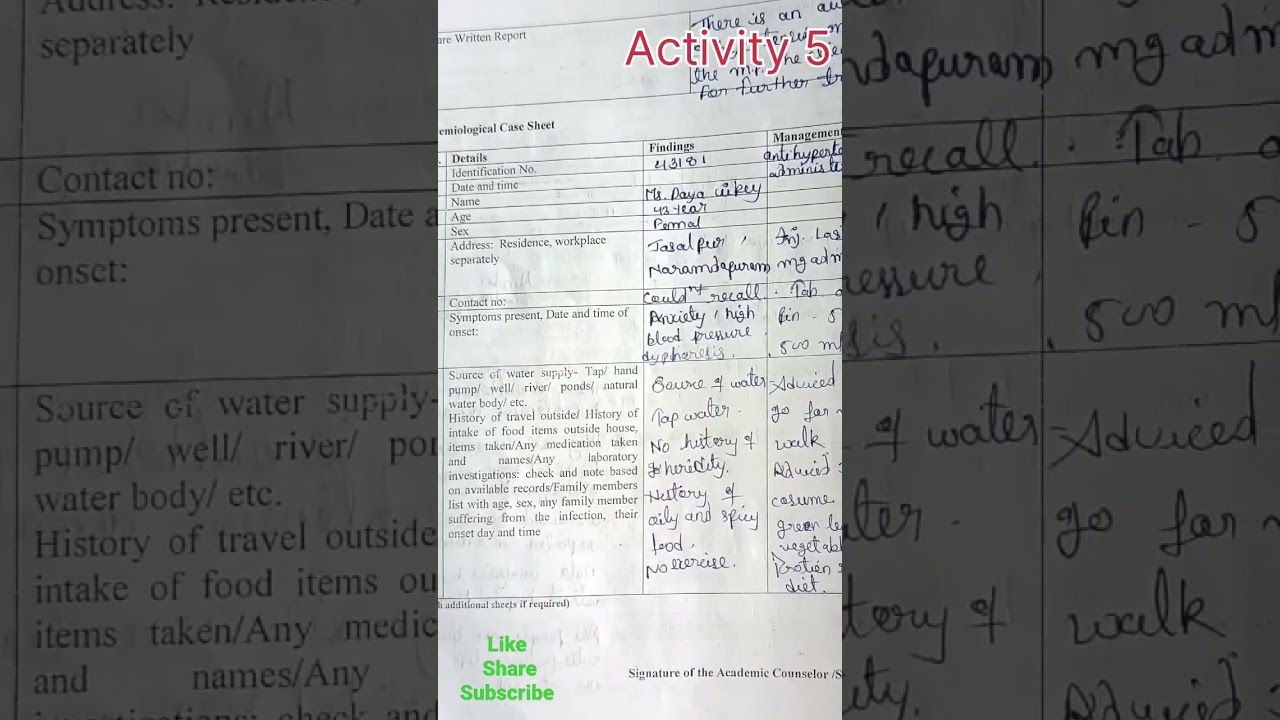 Activity 5
are Written Report
There is an au
the
for further tr
emiological Case Sheet
Details
Findings
Management
Identification No.
43181
antihyperte
administe
Date and time
Name
Ms. Daya uikey
Age
43 year
Sex
Femal
Address: Residence, workplace
separately
Jasalpur,
Naramdapuram
Inj. Las
mg adm
Contact no:
Could n't recall.
Tab
Symptoms present, Date and time of
onset:
Anxiety, high
blood pressure
dyphoresis.
pin - 5
500 m
Source of water supply- Tap/ hand
pump/ well/ river/ ponds/ natural
water body/ etc.
History of travel outside/ History of
intake of food items outside house,
items taken/Any medication taken
and names/Any laboratory
investigations: check and note based
on available records/Family members
list with age, sex, any family member
suffering from the infection, their
onset day and time
Source of water
Tap water.
No history of
History of
oily and spicy
food.
No exercise.
Adviced
go for
walk
Adviced
cosume
green le
vegetabl
Protien
diet.
h additional sheets if required)
Like
Share
Subscribe
Signature of the Academic Counselor /S